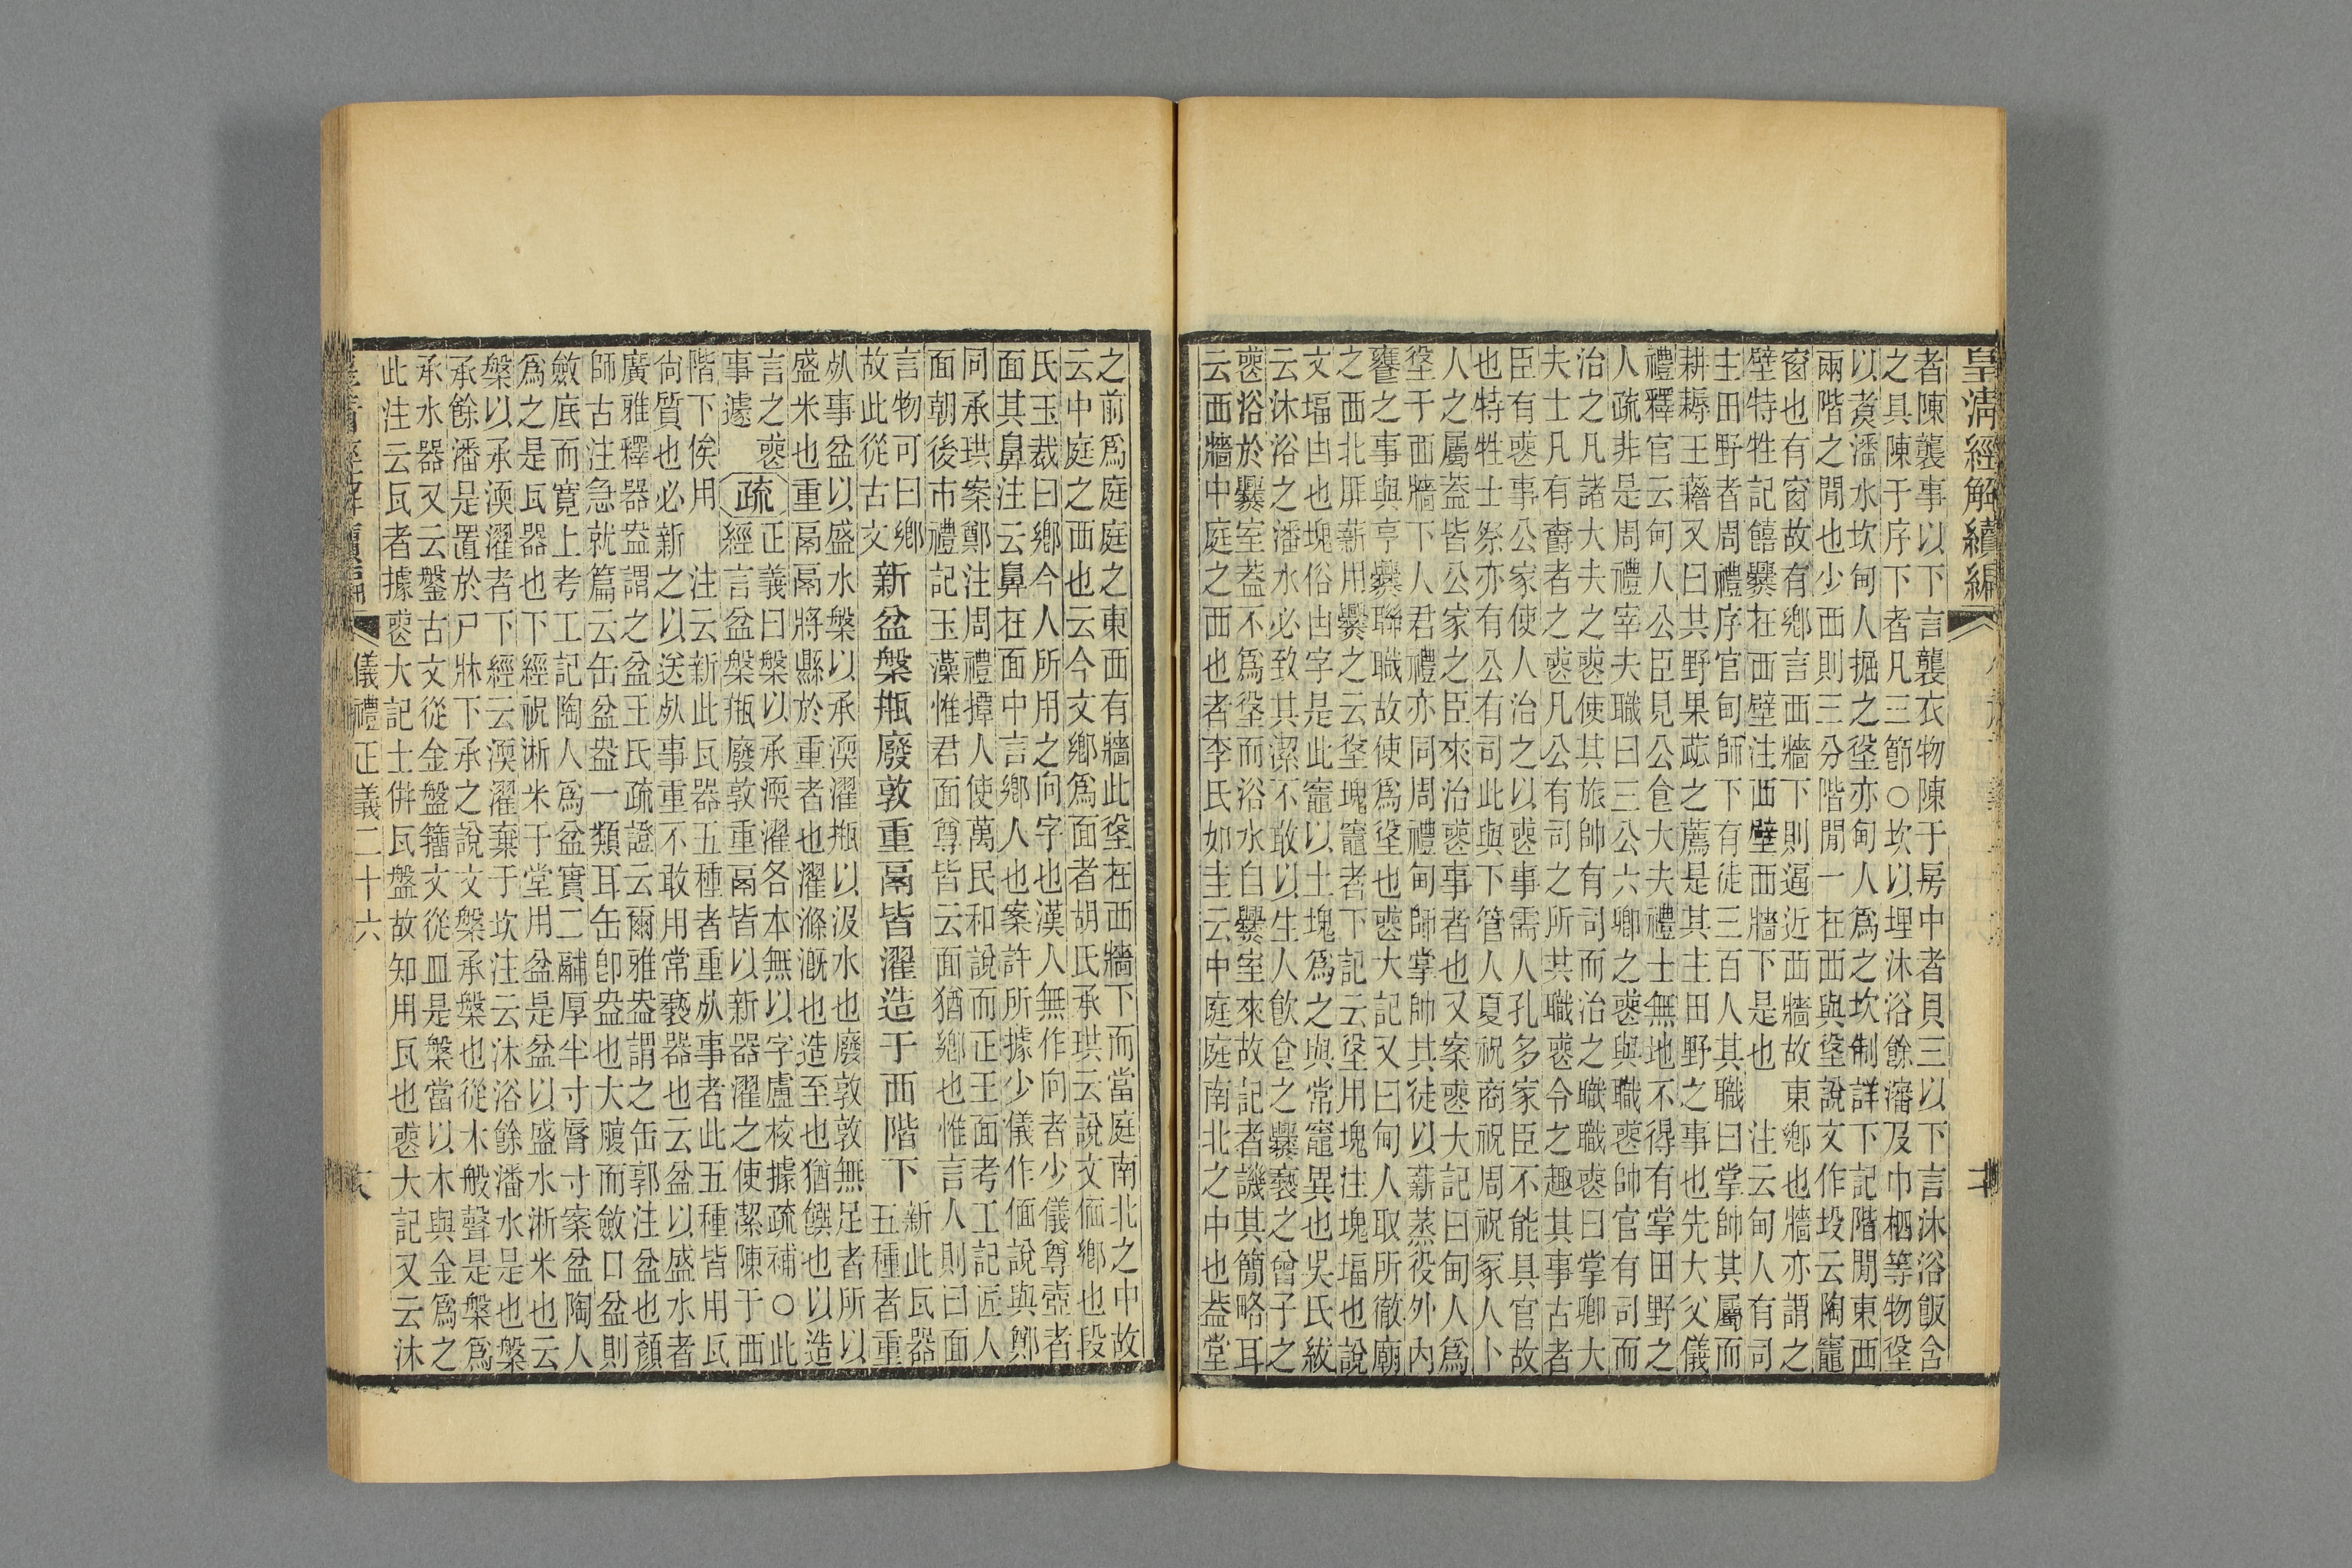 皇清經解續編
者陳襲事以下言襲衣物陳于房中者貝三以下言沐浴飯含
之具陳于序下者凡三節○坎以埋沐浴餘瀋及巾柶等物垼
以煑潘水坎甸人掘之垼亦甸人爲之坎制詳下記階閒東西
兩階之閒也少西則三分階閒一在西與垼說文作坄云陶竈
窗也有窗故有鄉言西牆下則逼近西牆故東鄉也牆亦謂之
壁特牲記饎爨在西壁注西壁西牆下是也　注云甸人有司
主田野者周禮序官甸師下有徒三百人其職曰掌帥其屬而
耕耨王藉又曰其野果蓏之薦是其主田野之事也先大父儀
禮釋官云甸人公臣見公食大夫禮士無地不得有掌田野之
人疏非是周禮宰夫職曰三公六卿之喪與職喪帥官有司而
治之凡諸大夫之喪使其旅帥有司而治之職職喪曰掌卿大
夫士凡有爵者之喪凡公有司之所共職喪令之趣其事古者
臣有喪事公家使人治之以喪事需人孔多家臣不能具官故
也特牲士祭亦有公有司此與下管人夏祝商祝周祝冢人卜
人之屬葢皆公家之臣來治喪事者也又案喪大記曰甸人爲
垼于西牆下人君禮亦同周禮甸師掌帥其徒以薪蒸役外內
饔之事與亨爨聯職故使爲垼也喪大記又曰甸人取所徹廟
之西北厞薪用爨之云垼塊竈者下記云垼用塊注塊堛也說
文堛凷也塊俗凷字是此竈以土塊爲之與常竈異也吳氏紱
云沐浴之潘水必致其潔不敢以生人飮食之爨褻之曾子之
喪浴於爨室葢不爲垼而浴水自爨室來故記者譏其簡略耳
云西牆中庭之西也者李氏如圭云中庭庭南北之中也葢堂
之前爲庭庭之東西有牆此垼在西牆下而當庭南北之中故
云中庭之西也云今文鄉爲面者胡氏承珙云說文偭鄉也段
氏玉裁曰鄉今人所用之向字也漢人無作向者少儀尊壺者
面其鼻注云鼻在面中言鄉人也案許所據少儀作偭說與鄭
同承珙案鄭注周禮撢人使萬民和說而正王面考工記匠人
面朝後市禮記玉藻惟君面尊皆云面猶鄉也惟言人則曰面
言物可曰鄉
故此從古文
新盆槃瓶廢敦重鬲皆濯造于西階下
新此瓦器
五種者重
死事盆以盛水槃以承渜濯瓶以汲水也廢敦敦無足者所以
盛米也重鬲鬲將縣於重者也濯滌溉也造至也猶饌也以造
言之喪
事遽
疏
正義曰槃以承渜濯各本無以字盧校據疏補○此
經言盆槃瓶廢敦重鬲皆以新器濯之使潔陳于西
階下俟用　注云新此瓦器五種者重死事者此五種皆用瓦
尙質也必新之以送死事重不敢用常褻器也云盆以盛水者
廣雅釋器盎謂之盆王氏疏證云爾雅盎謂之缶郭注盆也顏
師古注急就篇云缶盆盎一類耳缶卽盎也大腹而斂口盆則
斂底而寬上考工記陶人爲盆實二鬴厚半寸脣寸案盆陶人
爲之是瓦器也下經祝淅米于堂用盆是盆以盛水淅米也云
槃以承渜濯者下經云渜濯棄于坎注云沐浴餘潘水是也槃
承餘潘是置於尸牀下承之說文槃承槃也從木般聲是槃爲
承水器又云鎜古文從金盤籒文從皿是槃當以木與金爲之
此注云瓦者據喪大記士倂瓦盤故知用瓦也喪大記又云沐
皇清經解續編　儀禮正義二十六